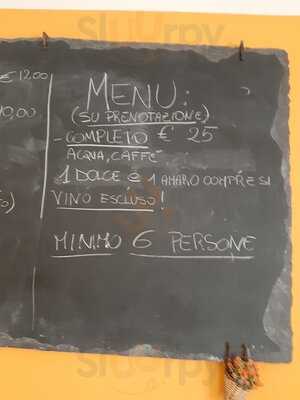 € 12.00
MENU:
(SU PRENOTAZIONE)
- COMPLETO € 25
ACQUA, CAFFÈ
1 DOLCE E 1 AMARO COMPRESI
VINO ESCLUSO!
MINIMO 6 PERSONE
Sluurpy